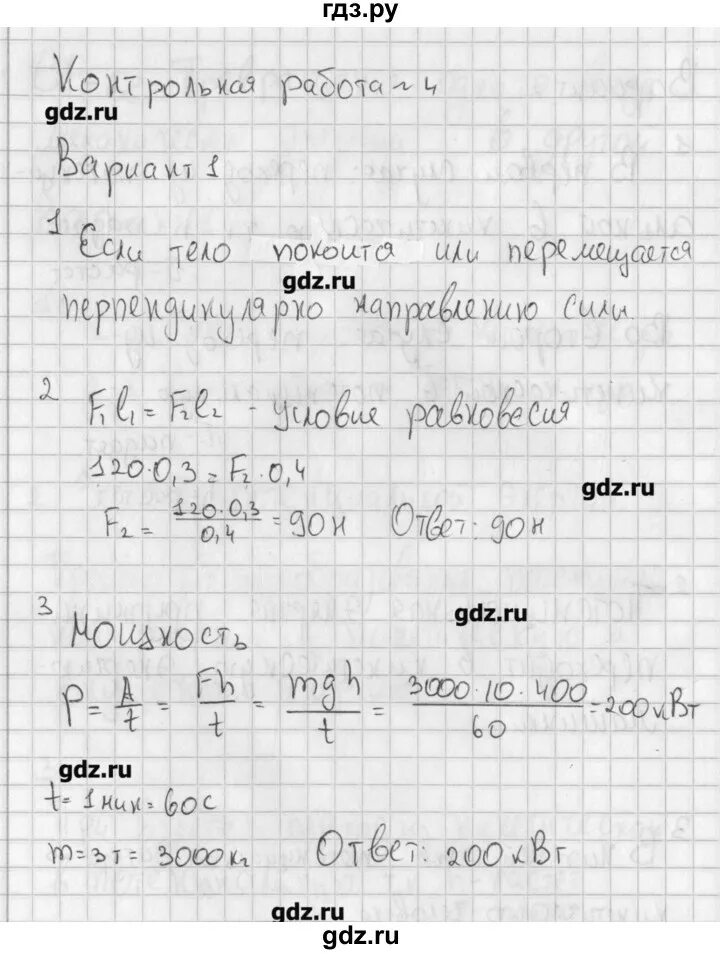 гдз.ру
Контрольная работа ~ 4
gdz.ru
Вариант 1
1 Если тело покоится или перемещается
gdz.ru
перпендикулярно направлению силы.
2 F₁l₁ = F₂l₂ - условие равновесия
120·0,3 = F₂·0,4
gdz.ru
F₂ = 120·0,3 / 0,4 = 90 н Ответ: 90 н
3 gdz.ru
Мощность
P = A/t = Fh/t = mgh/t = 3000·10·400 / 60 = 200 кВт
gdz.ru
t = 1 мин = 60 с
m = 3 т = 3000 кг Ответ: 200 кВт
gdz.ru
gdz.ru